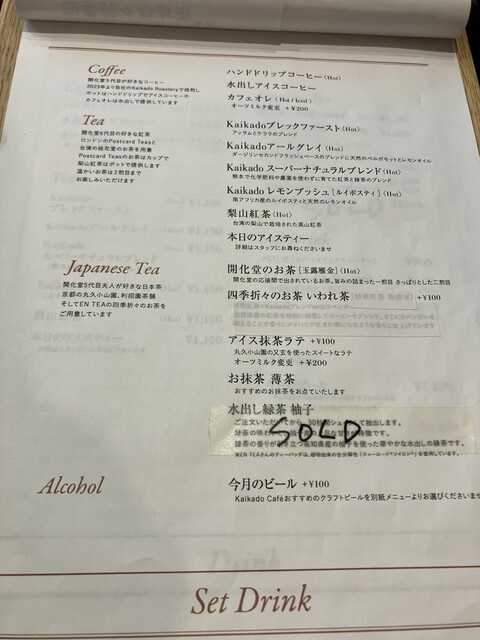 Coffee
開化堂5代目が好きなコーヒー
2023年より自社のKaikado Roasteryで焙煎し
ポットはハンドドリップでアイスコーヒーや
カフェオレは水出しで提供しています
ハンドドリップコーヒー (Hot)
水出しアイスコーヒー
カフェオレ (Hot / Iced)
オーツミルク変更 +¥200
Tea
開化堂6代目の好きな紅茶
ロンドンのPostcard Teasと
台湾の桂花堂のお茶を用意
Postcard Teasのお茶はカップで
梨山紅茶はポットで提供します
温かいお茶は2煎目まで
お楽しみいただけます
Kaikadoブレックファースト (Hot)
アッサムとケララのブレンド
Kaikadoアールグレイ (Hot)
ダージリンセカンドフラッシュベースのブレンドに天然のベルガモットとレモンオイル
Kaikado スーパーナチュラルブレンド (Hot)
熊本で化学肥料や農薬を使わずに育てた紅茶と緑茶のブレンド
Kaikado レモンブッシュ [ルイボスティ] (Hot)
南アフリカ産のルイボスティと天然のレモンオイル
梨山紅茶 (Hot)
台湾の梨山で栽培された高山紅茶
本日のアイスティー
詳細はスタッフにお尋ねくださいませ
Japanese Tea
開化堂5代目夫人が好きな日本茶
京都の丸久小山園、利招園茶舗
そしてEN TEAの四季折々のお茶を
ご用意しています
開化堂のお茶 [玉露雁金] (Hot)
開化堂の応接間で出されているお茶。旨みの詰まった一煎目 さっぱりとした二煎目
四季折々のお茶 いわれ茶 +¥100
アイス抹茶ラテ +¥100
丸久小山園の又玄を使ったスイートなラテ
オーツミルク変更 +¥200
お抹茶 薄茶
おすすめのお抹茶をお点ていたします
水出し緑茶 柚子
SOLD
Alcohol
今月のビール +¥100
Kaikado Caféおすすめのクラフトビールを別紙メニューよりお選びくださいませ
Set Drink